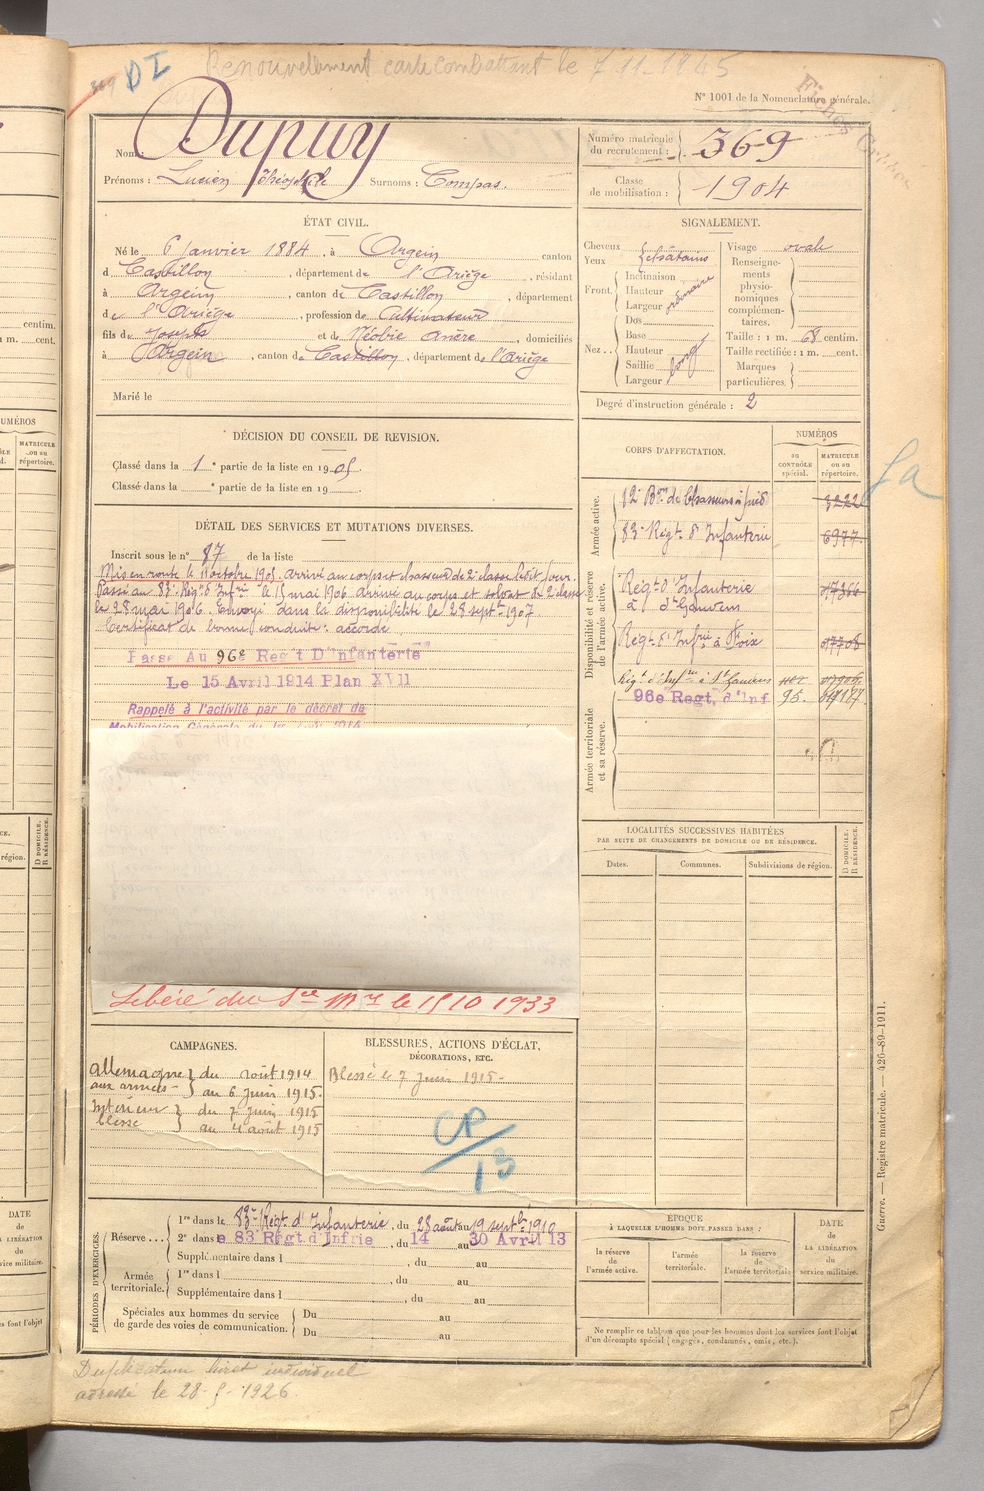 369 DI Renouvellement carte combattant le 7.11.1945
N° 1001 de la Nomenclature générale.
Fiches
Nom: Dupuy
Prénoms : Lucien Théophile Surnoms : Compas.
Numéro matricule du recrutement : 369
Classe de mobilisation : 1904
ÉTAT CIVIL.
Né le 6 Janvier 1884, à Argein canton
d Castillon, département de l'Ariège, résidant
à Argein, canton de Castillon, département
de l'Ariège, profession de Cultivateur
fils de Joseph et de Néobie Anère, domiciliés
à Argein, canton de Castillon, département de l'Ariège
Marié le
SIGNALEMENT.
Cheveux
Yeux
châtains
Front.
Inclinaison
Hauteur
Largeur
ordinaire
Nez..
Dos
Base
Hauteur
Saillie
Largeur
long
Visage ovale
Renseignements physionomiques complémentaires.
Taille : 1 m. 68 centim.
Taille rectifiée : 1 m. cent.
Marques particulières.
Degré d'instruction générale : 2
DÉCISION DU CONSEIL DE REVISION.
Classé dans la 1e partie de la liste en 1905.
Classé dans la e partie de la liste en 19
DÉTAIL DES SERVICES ET MUTATIONS DIVERSES.
Inscrit sous le n° 87 de la liste
Mis en route le 11 octobre 1905. arrivé au corps et chasseur de 2e classe ledit jour.
Passé au 83e Régt d'Infrie le 15 mai 1906 arrivé au corps et soldat de 2e classe
le 28 mai 1906. Envoyé dans la disponibilité le 28 septbre 1907
Certificat de bonne conduite : accordé
Passé Au 96e Reg't D'infanterie
Le 15 Avril 1914 Plan XVII
Rappelé à l'activité par le décret de
Mobilisation Générale du 1er août 1914
Libéré du Sce Mre le 15 10 1933
CORPS D'AFFECTATION.
NUMÉROS
au CONTRÔLE spécial.
MATRICULE ou au répertoire.
Armée active.
12e Bon de Chasseurs à pied 3222
83e Régt d'Infanterie 6977
Disponibilité et réserve de l'armée active.
Régt d'Infanterie
à St Gaudens
Régt d'Infrie à Foix
Régt d'Infrie à St Gaudens
96e Regt. d'Inf 95.
Armée territoriale et sa réserve.
LOCALITÉS SUCCESSIVES HABITÉES
PAR SUITE DE CHANGEMENTS DE DOMICILE OU DE RÉSIDENCE.
Dates. Communes. Subdivisions de région. D DOMICILE. R RÉSIDENCE.
CAMPAGNES.
Allemagne du août 1914
aux armées au 6 Juin 1915.
Intérieur du 7 Juin 1915
blessé au 4 août 1915
BLESSURES, ACTIONS D'ÉCLAT,
DÉCORATIONS, ETC.
Blessé le 7 Juin 1915.
CR/13
PÉRIODES D'EXERCICES.
Réserve...
1re dans le 83e Régt d'Infanterie, du 28 août au 19 septbre 1910
2e dans le 83 Régt. d'Infrie, du 14 au 30 Avril 13
Supplémentaire dans l , du au
Armée territoriale.
1re dans l , du au
Supplémentaire dans l , du au
Spéciales aux hommes du service de garde des voies de communication.
Du au
Du au
ÉPOQUE
À LAQUELLE L'HOMME DOIT PASSER DANS :
la réserve de l'armée active.
l'armée territoriale.
la réserve de l'armée territoriale
DATE de LA LIBÉRATION du service militaire.
Ne remplir ce tableau que pour les hommes dont les services font l'objet
d'un décompte spécial (engagés, condamnés, omis, etc.).
Guerre. — Registre matricule. — 426-89-1911.
Duplicatum livret individuel
adressé le 28-5-1926.
NUMÉROS
MATRICULE ou au répertoire.
centim.
cent.
région.
D DOMICILE. R RÉSIDENCE.
DATE
de
LA LIBÉRATION
du
service militaire.